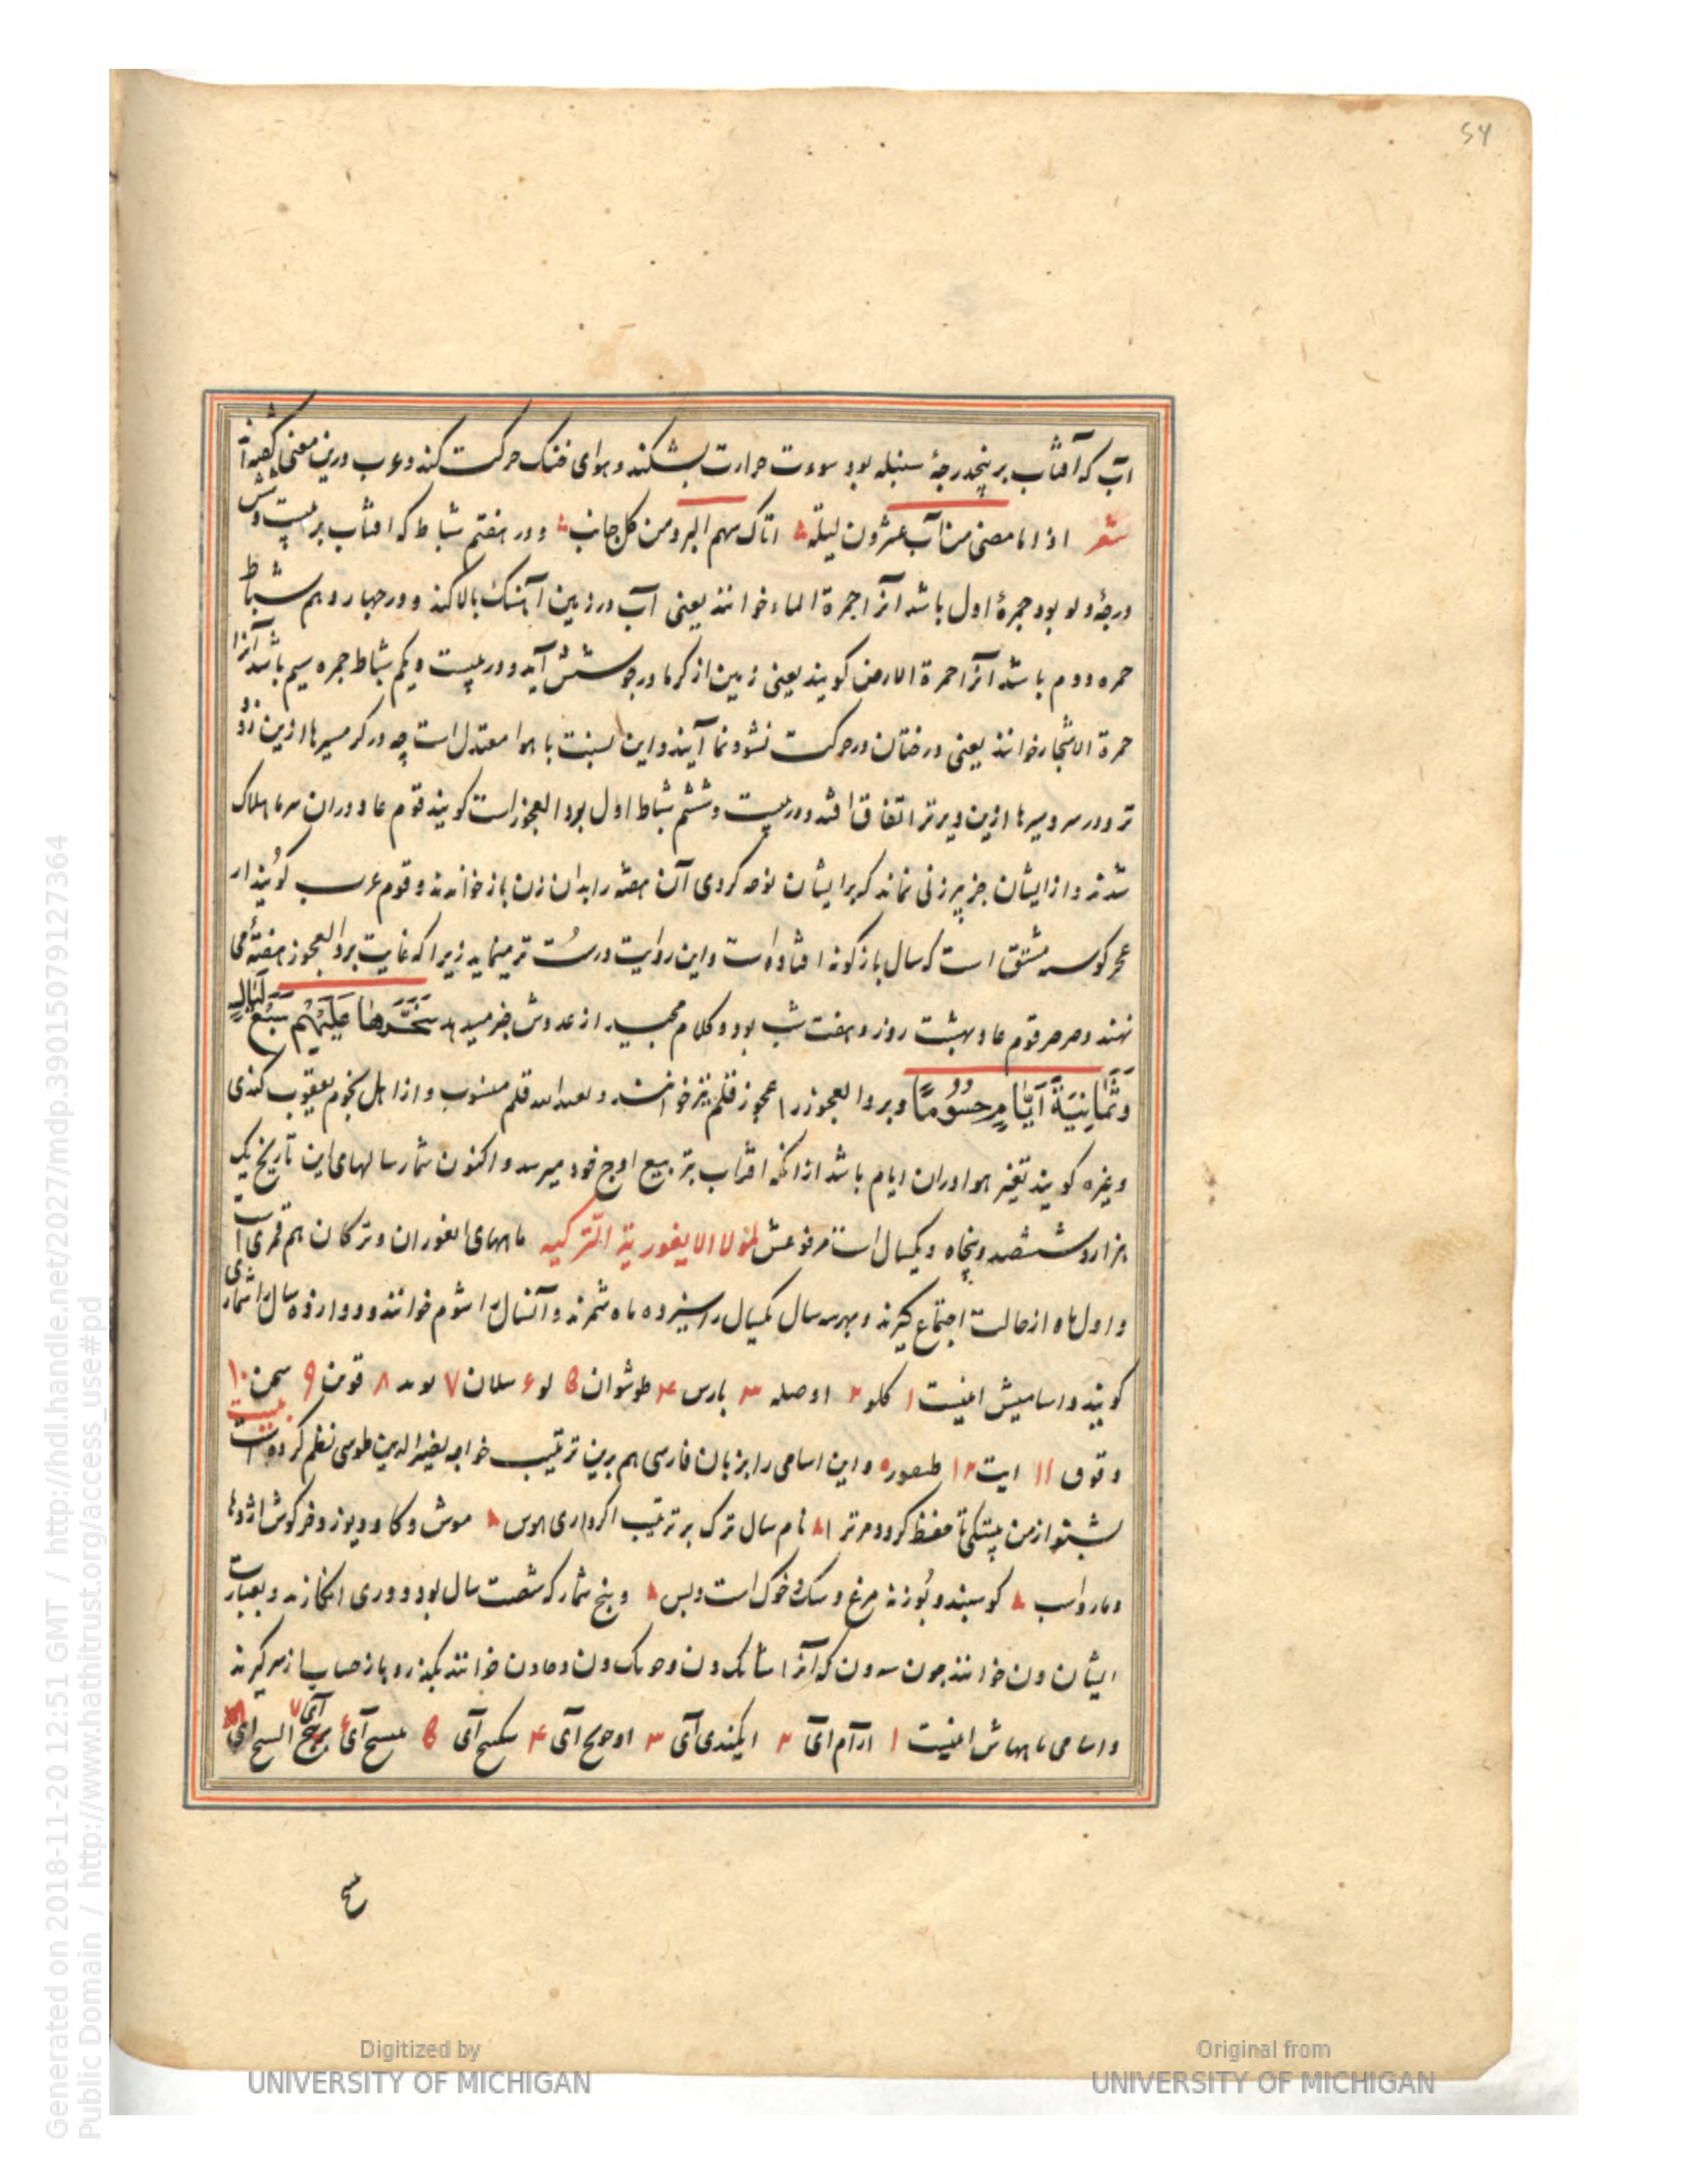 54
آب که آفتاب بر پنجدرجهٔ سنبله بود سورت حرارت بشکند و هوای خنک حرکت کند و عرب درین معنی گفته‌اند
شعر اذا ما مضی من آب عشرون لیلة اتاک سهم البرد من کل جانب و در هفتم شباط که افتاب بر بیست وشش
درجهٔ دلو بود جمرهٔ اول باشد آنرا جمرة الماء خوانند یعنی آب در زمین آهنک بالا کند و در چهاردهم شباط
جمره دوم باشد آنرا جمرة الارض کویند یعنی زمین از کرما در جوشش آید و در بیست و یکم شباط جمره سیم باشد آنرا
جمرة الاشجار خوانند یعنی درختان در حرکت نشو و نما آیند و این نسبت با هوا معتدل است چه در کرمسیرها ازین زود
تر و در سردسیرها ازین دیرتر اتفاق افتد و در بیست و ششم شباط اول برد العجوز است کویند قوم عاد دران سرما هلاک
شدند و از ایشان جز پیرزنی نماند که بر ایشان نوحه کردی آن هفته را بدان زن باز خواندند و قوم عرب کویند از
عجز کوسه مشتق است که سال بازکونه افتاده است و این روایت درست تر مینماید زیرا که غایت برد العجوز هفتهٔ می
نهند و صرصر قوم عاد هشت روز و هفت شب بود و کلام مجید از عددش خبر میدهد سَخَّرَهَا عَلَيْهِم سَبْعَ لَيَالٍ
وَثَمَانِيَةَ أَيَّامٍ حُسُومًا و برد العجوز را عجوز قلم نیز خوانند و بعبدالله قلم منسوب و از اهل نجوم یعقوب کندی
و غیره کویند تغیر هوا دران ایام باشد ازانکه افتاب بتربیع اوج خود میرسد و اکنون شمار سالهای این تاریخ یک
هزار و ششصد و پنجاه و یکسال است فرغش لمولا الایغوریة الترکیه ماههای ایغوران و ترکان هم قمری است
و اول ماه از حالت اجتماع کیرند و بهر سه سال یکسال را سیزده ماه شمرند و آنسال را شوم خوانند و دوازده سال را شماری
کویند و اسامیش اینست ۱ کلو ۲ اوصله ۳ بارس ۴ طوشوان ۵ لو ۶ سلان ۷ لوند ۸ قوین ۹ سحن ۱۰
و توق ۱۱ ایت ۱۲ طنغور و این اسامی را بزبان فارسی هم برین ترتیب خواجه نصیرالدین طوسی نظم کرده است بیت
بشنو از من بیتکی تا حفظ کردد مر ترا نام سال ترک بر ترتیب اکر داری هوس موش و کاو و یوز و خرکوش اژدها
و مار و اسب کوسپند و بوزنه مرغ و سک و خوک است و بس و پنج شمار که شصت سال بود دوری انکارند و بعبارت
ایشان ون خوانند چون سه ون که آنرا شانک ون و جونک ون و خاون خوانند بکذرد باز حساب از سر کیرند
و اسامی ماههاش اینست ۱ ارآم آی ۲ ایکندی آی ۳ اوجنج آی ۴ بسنج آی ۵ عسح آی ۶ آی ۷